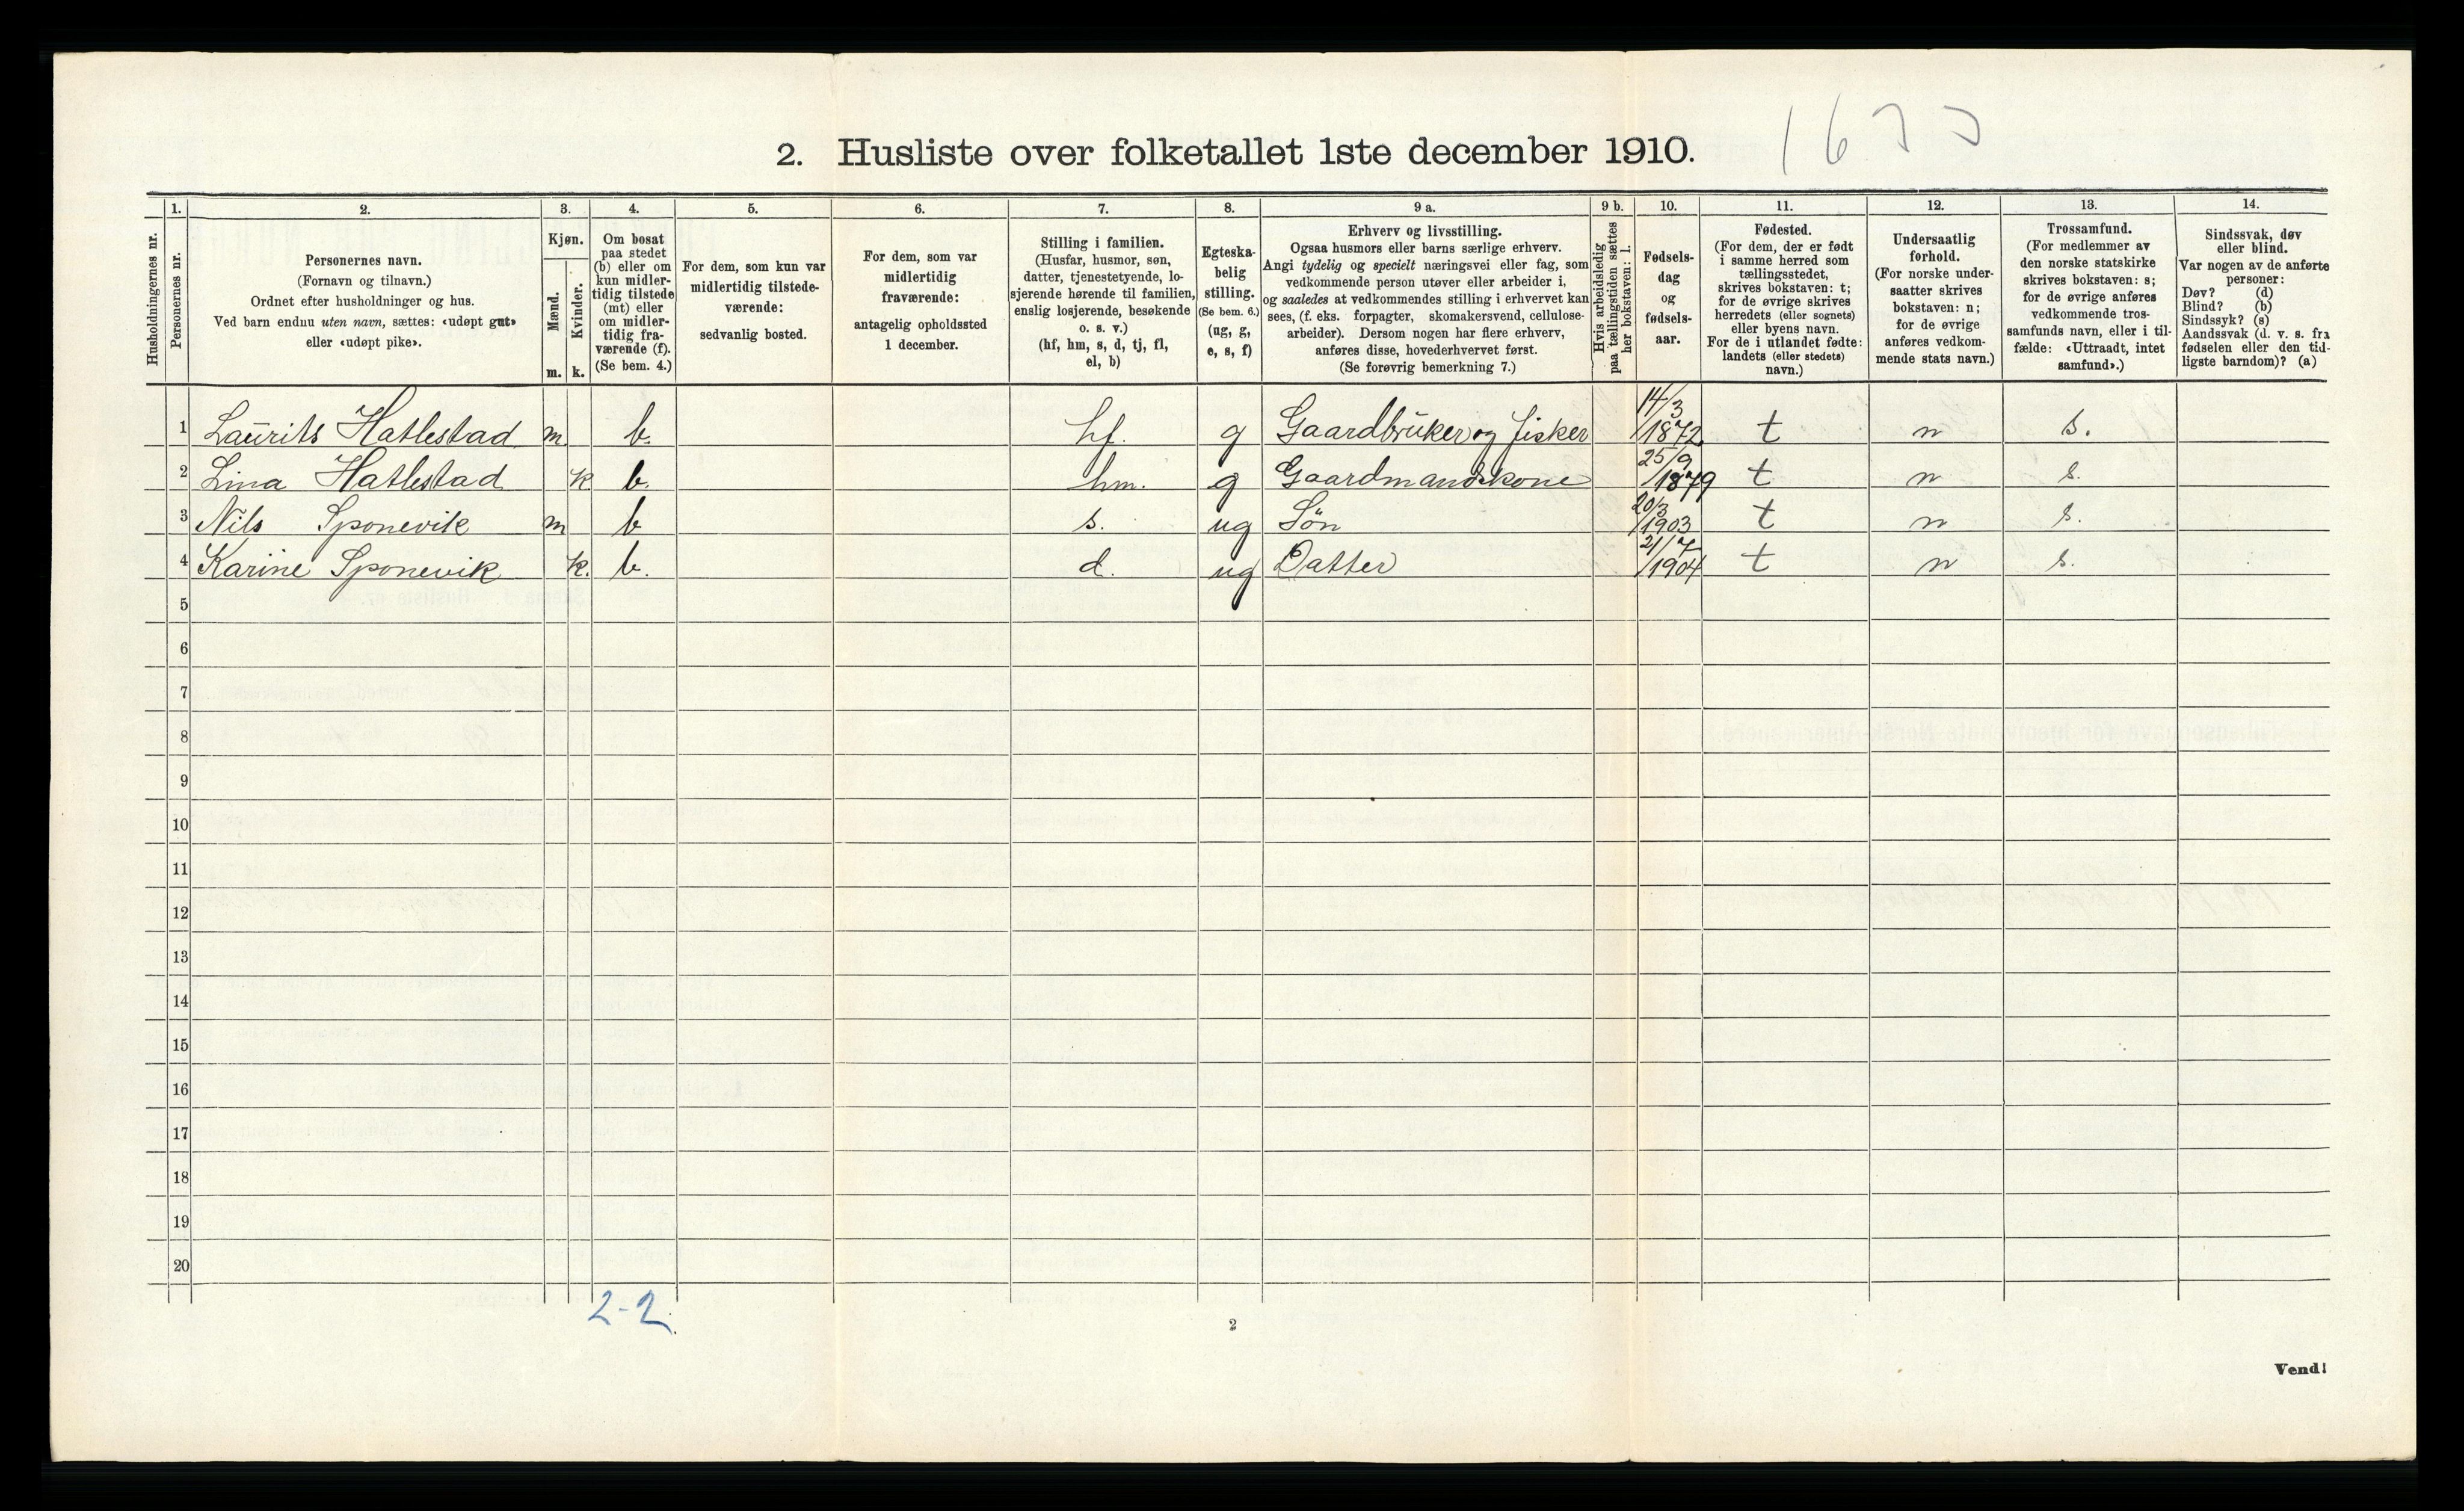 2. Husliste over folketallet 1ste december 1910.
Husholdningernes nr.
1. Personernes nr.
2. Personernes navn.
(Fornavn og tilnavn.)
Ordnet efter husholdninger og hus.
Ved barn endnu uten navn, sættes: «udøpt gut»
eller «udøpt pike».
3. Kjøn.
Mænd. m.
Kvinder. k.
4. Om bosat
paa stedet
(b) eller om
kun midler-
tidig tilstede
(mt) eller
om midler-
tidig fra-
værende (f).
(Se bem. 4.)
5. For dem, som kun var
midlertidig tilstede-
værende:
sedvanlig bosted.
6. For dem, som var
midlertidig
fraværende:
antagelig opholdssted
1 december.
7. Stilling i familien.
(Husfar, husmor, søn,
datter, tjenestetyende, lo-
sjerende hørende til familien,
enslig losjerende, besøkende
o. s. v.)
(hf, hm, s, d, tj, fl,
el, b)
8. Egteska-
belig
stilling.
(Se bem. 6.)
(ug, g,
e, s, f)
9 a. Erhverv og livsstilling.
Ogsaa husmors eller barns særlige erhverv.
Angi tydelig og specielt næringsvei eller fag, som
vedkommende person utøver eller arbeider i,
og saaledes at vedkommendes stilling i erhvervet kan
sees, (f. eks. forpagter, skomakersvend, cellulose-
arbeider). Dersom nogen har flere erhverv,
anføres disse, hovederhvervet først.
(Se forøvrig bemerkning 7.)
9 b. Hvis arbeidsledig
paa tællingstiden sættes
her bokstaven: l.
10. Fødsels-
dag
og
fødsels-
aar.
11. Fødested.
(For dem, der er født
i samme herred som
tællingsstedet,
skrives bokstaven: t;
for de øvrige skrives
herredets (eller sognets)
eller byens navn.
For de i utlandet fødte:
landets (eller stedets)
navn.)
12. Undersaatlig
forhold.
(For norske under-
saatter skrives
bokstaven: n;
for de øvrige
anføres vedkom-
mende stats navn.)
13. Trossamfund.
(For medlemmer av
den norske statskirke
skrives bokstaven: s;
for de øvrige anføres
vedkommende tros-
samfunds navn, eller i til-
fælde: «Uttraadt, intet
samfund».)
14. Sindssvak, døv
eller blind.
Var nogen av de anførte
personer:
Døv? (d)
Blind? (b)
Sindssyk? (s)
Aandssvak (d. v. s. fra
fødselen eller den tid-
ligste barndom)? (a)
1 Laurits Hatlestad m. b. hf. g Gaardbruker og fisker 14/3 1872 t n s.
2 Lina Hatlestad k b. hm. g Gaardmandskone 25/9 1879 t n s.
3 Nils Sponevik m b s. ug Søn 20/3 1903 t n s.
4 Karine Sponevik k. b. d. ug Datter 21/7 1904 t n s.
5
6
7
8
9
10
11
12
13
14
15
16
17
18
19
20
2-2
2
Vend!